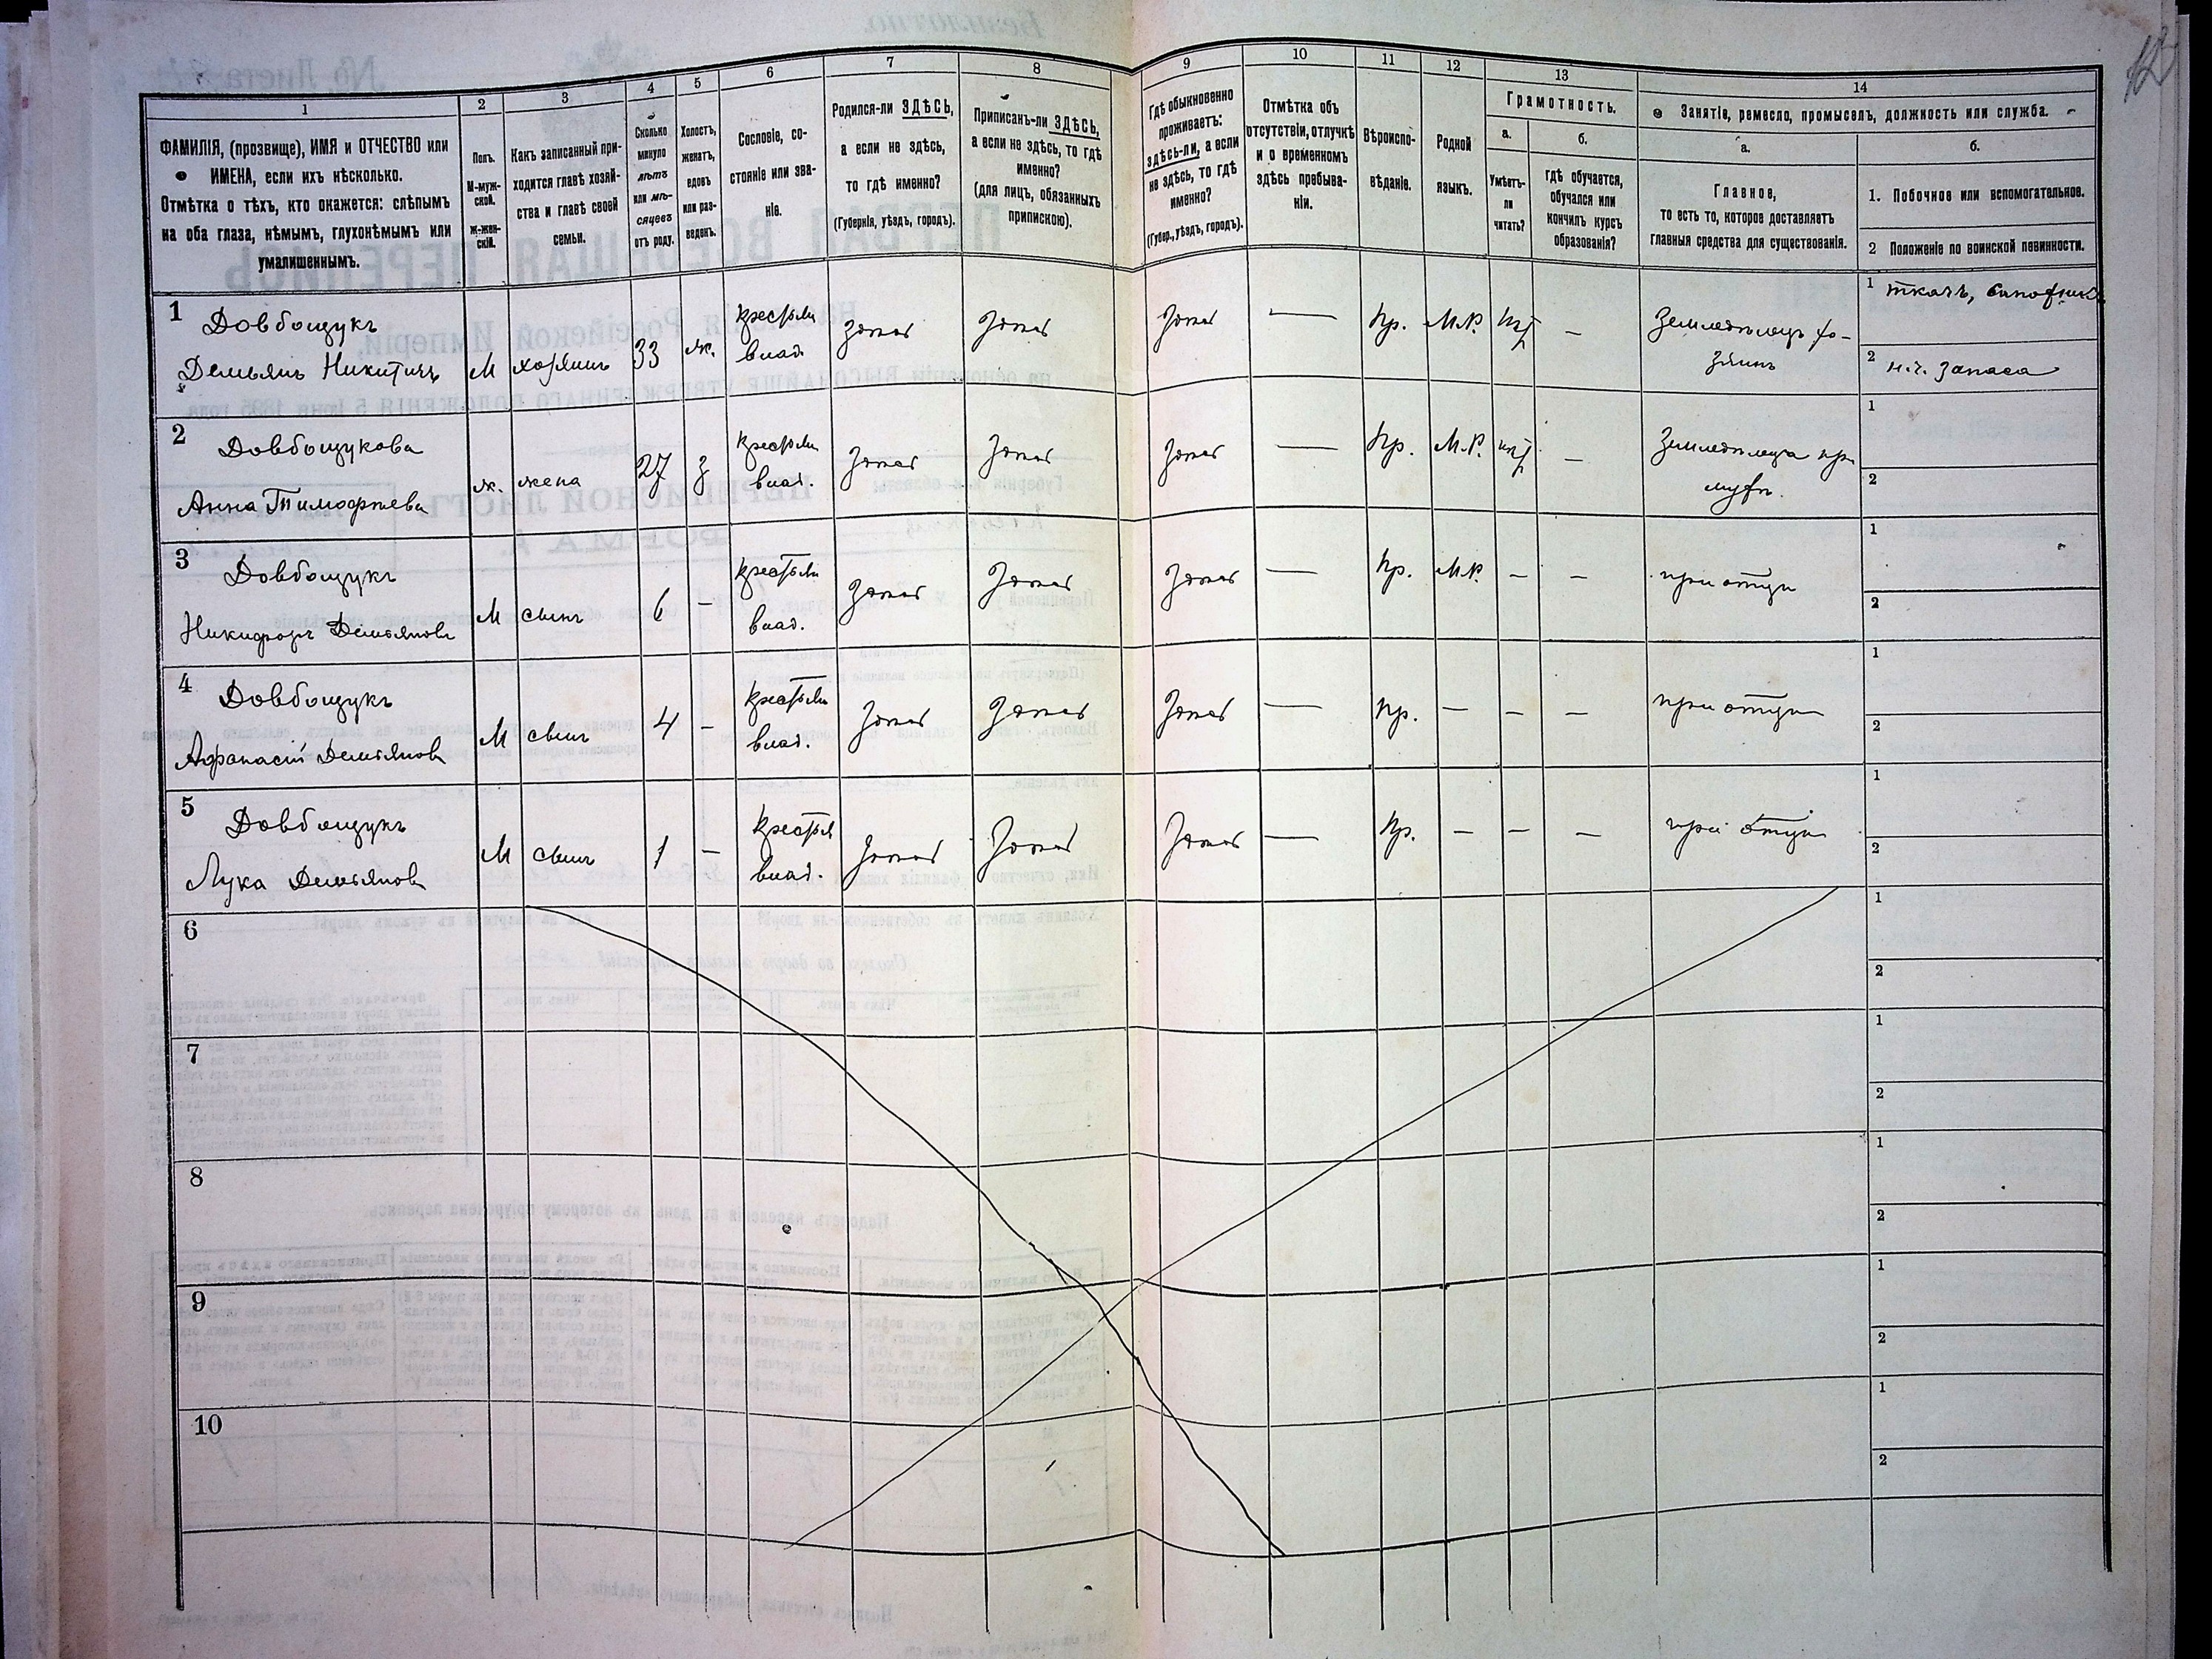 1 2 3 4 5 6 7 8 9 10 11 12 13 14
ФАМИЛІЯ, (прозвище), ИМЯ и ОТЧЕСТВО или
ИМЕНА, если ихъ нѣсколько.
Отмѣтка о тѣхъ, кто окажется: слѣпымъ
на оба глаза, нѣмымъ, глухонѣмымъ или
умалишеннымъ.
Полъ.
М-муж-
ской.
ж-жен-
скій.
Какъ записанный при-
ходится главѣ хозяй-
ства и главѣ своей
семьи.
Сколько
минуло
лѣтъ
или мѣ-
сяцевъ
отъ роду.
Холостъ,
женатъ,
вдовъ
или раз-
веденъ.
Сословіе, со-
стояніе или зва-
ніе.
Родился-ли ЗДѢСЬ,
а если не здѣсь,
то гдѣ именно?
(Губернія, уѣздъ, городъ).
Приписанъ-ли ЗДѢСЬ,
а если не здѣсь, то гдѣ
именно?
(для лицъ, обязанныхъ
припискою).
Гдѣ обыкновенно
проживаетъ:
здѣсь-ли, а если
не здѣсь, то гдѣ
именно?
(Губер., уѣздъ, городъ).
Отмѣтка объ
отсутствіи, отлучкѣ
и о временномъ
здѣсь пребыва-
ніи.
Вѣроиспо-
вѣданіе.
Родной
языкъ.
Грамотность.
а.
Умѣетъ-
ли
читать?
б.
гдѣ обучается,
обучался или
кончилъ курсъ
образованія?
Занятіе, ремесло, промыселъ, должность или служба.
а.
Главное,
то есть то, которое доставляетъ
главныя средства для существованія.
б.
1. Побочное или вспомогательное.
2 Положеніе по воинской повинности.
1 Довбощукъ
Демьянъ Никитичъ
М хозяинъ 33 ж. крестьян
влад. здѣсь здѣсь здѣсь — Пр. М.Р. нѣт — Земледѣлецъ хо-
зяинъ
1 ткачъ,
2 н.ч. запаса
2 Довбощукова
Анна Тимофѣева
ж. жена 27 з крестьян
влад. здѣсь здѣсь здѣсь — Пр. М.Р. нѣт — Земледѣлица при
мужѣ.
1
2
3 Довбощукъ
Никифоръ Демьянов
М сынъ 6 — крестьян
влад. здѣсь здѣсь здѣсь — Пр. М.Р. — — при отцѣ
1
2
4 Довбощукъ
Афанасій Демьянов
М сынъ 4 — крестьян
влад. здѣсь здѣсь здѣсь — Пр. — — — при отцѣ
1
2
5 Довбощукъ
Лука Демьянов
М сынъ 1 — крестья
влад. здѣсь здѣсь здѣсь — Пр. — — — при отцѣ
1
2
6
1
2
7
1
2
8
1
2
9
1
2
10
1
2